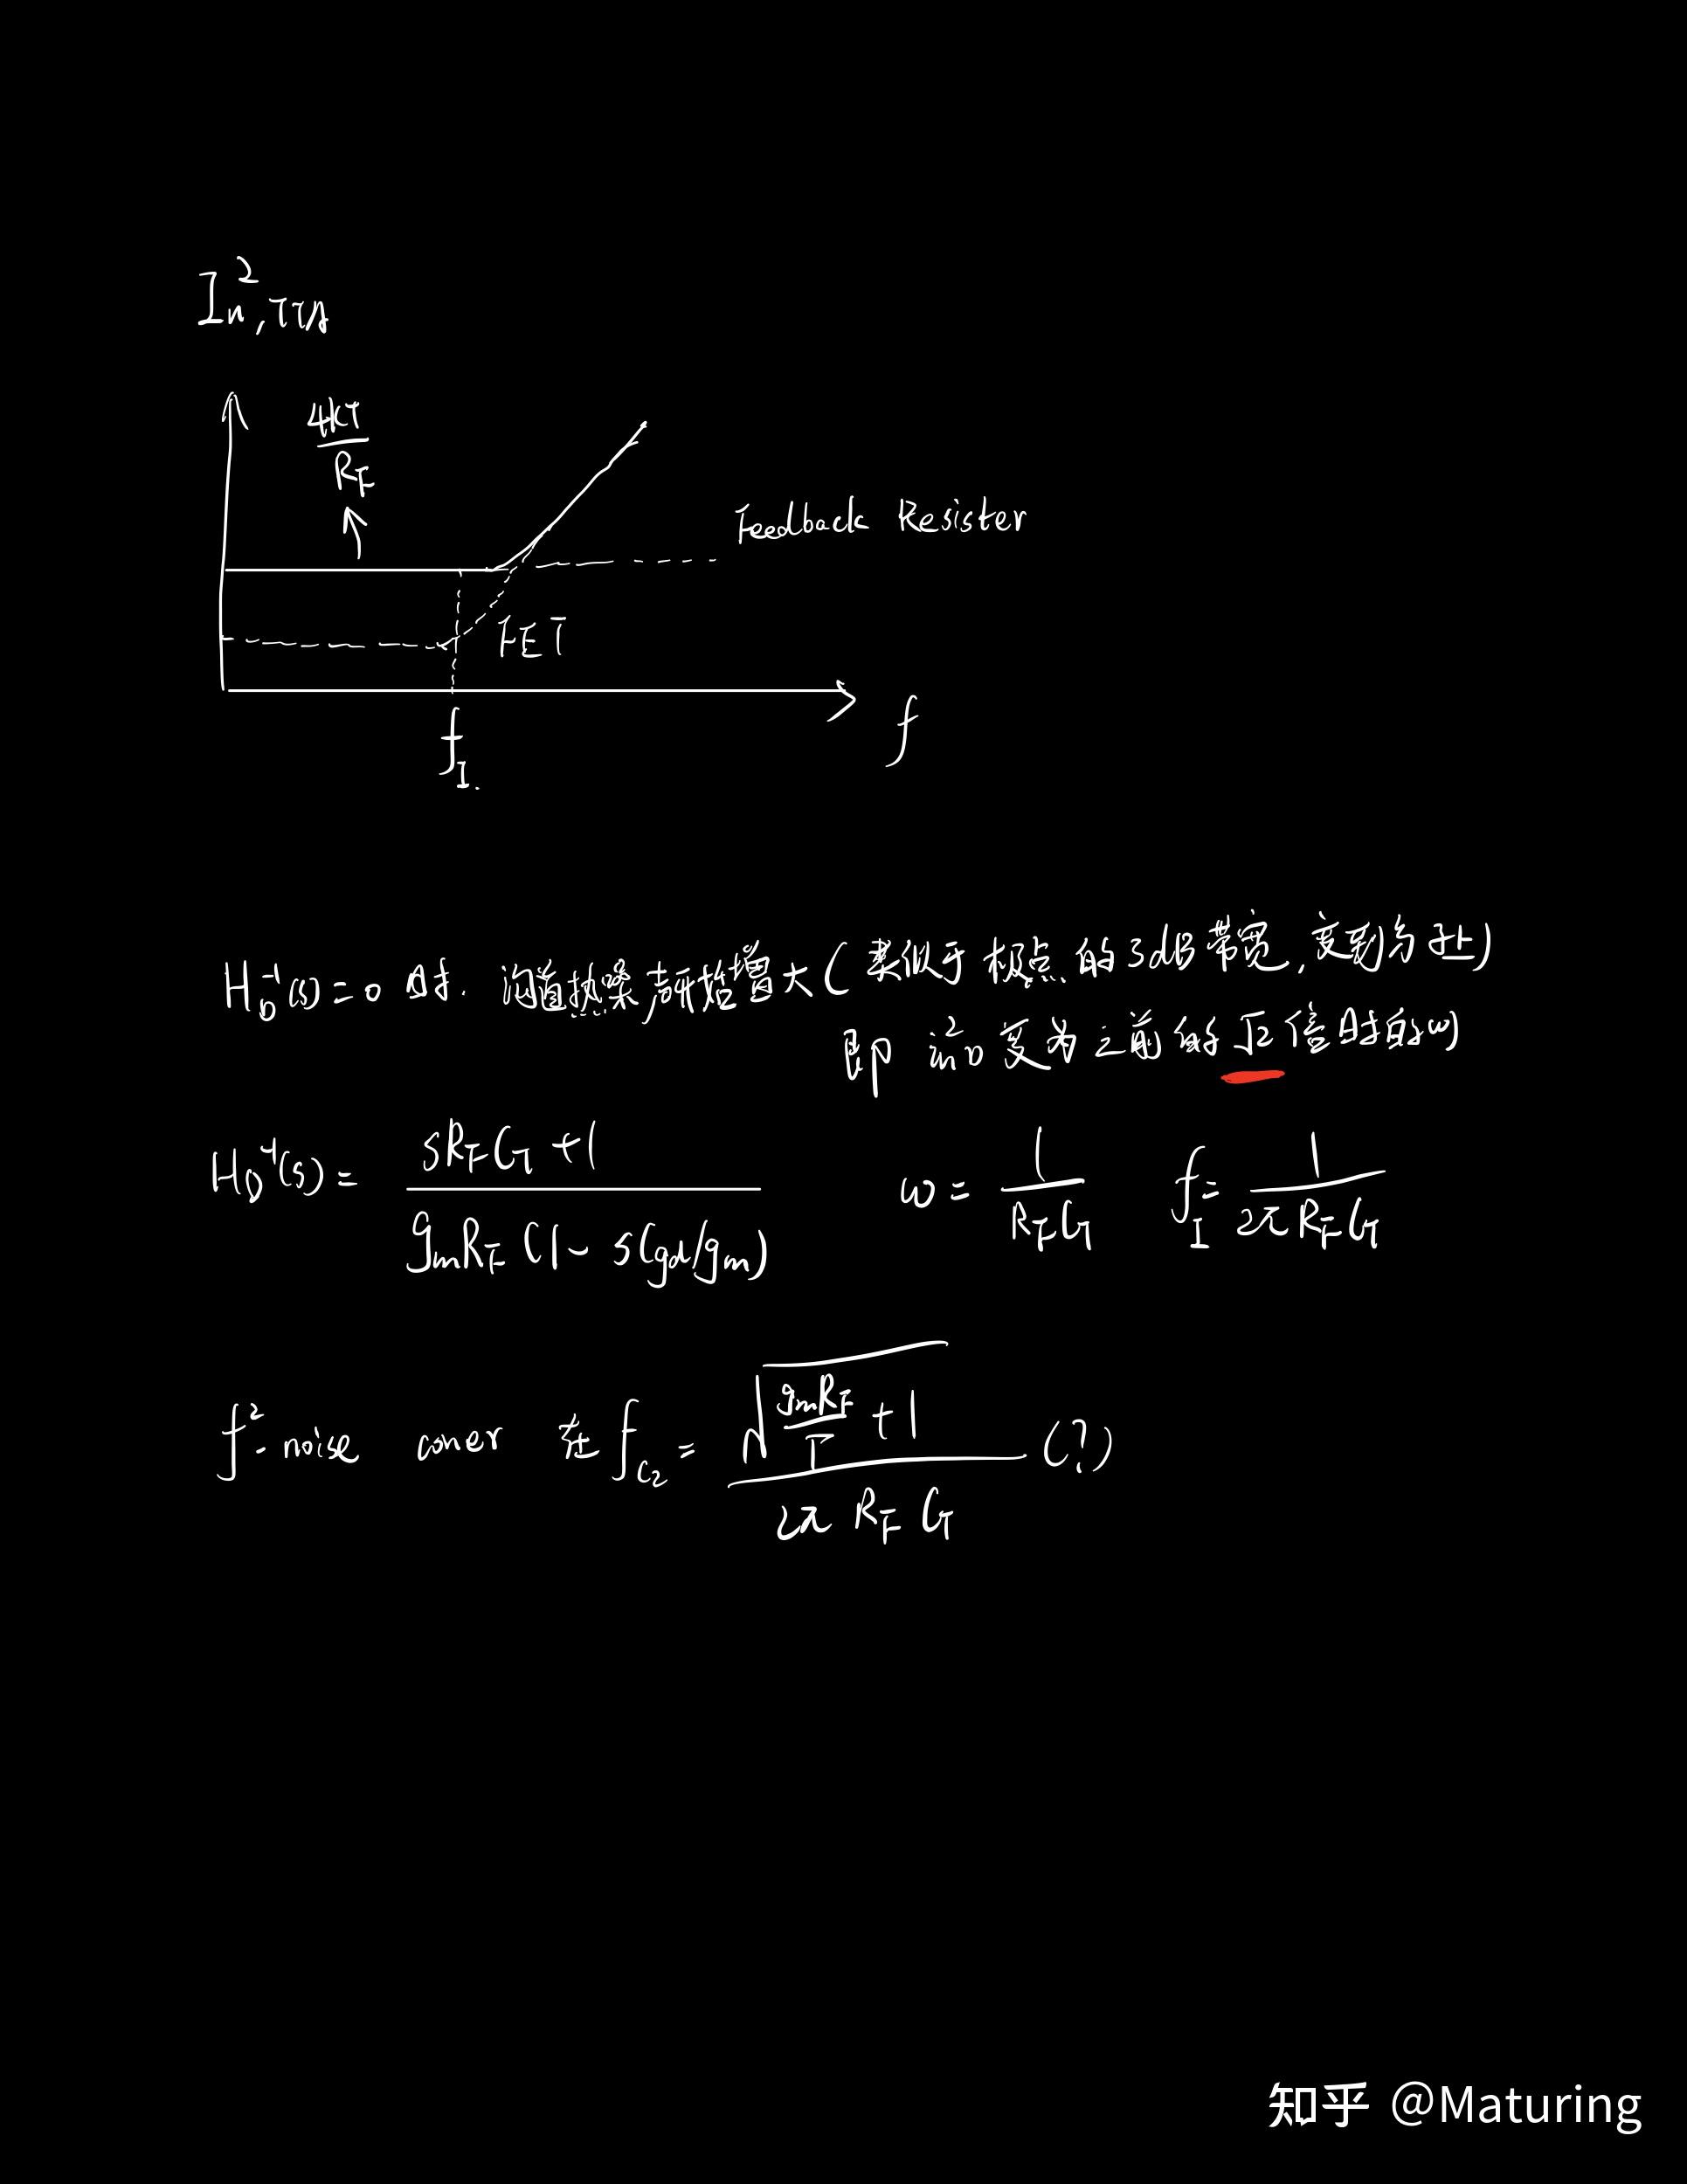 I²n,TIA
4KT/RF
Feedback Resister
FET
f
fI.
HD⁻¹(s)=0 时. 沟道热噪声开始增大(类似于极点的3dB带宽,变到分子上)
即 i²nD 变为之前的√2倍时的ω)
HD⁻¹(s)= (sRFCT+1)/(gmRF(1-s(gd/gm)) ω=1/(RFCT) fI=1/(2πRFCT)
f²-noise coner 在fC2=√(gmRF/Γ+1)/(2πRFCT) (?)
知乎 @Maturing